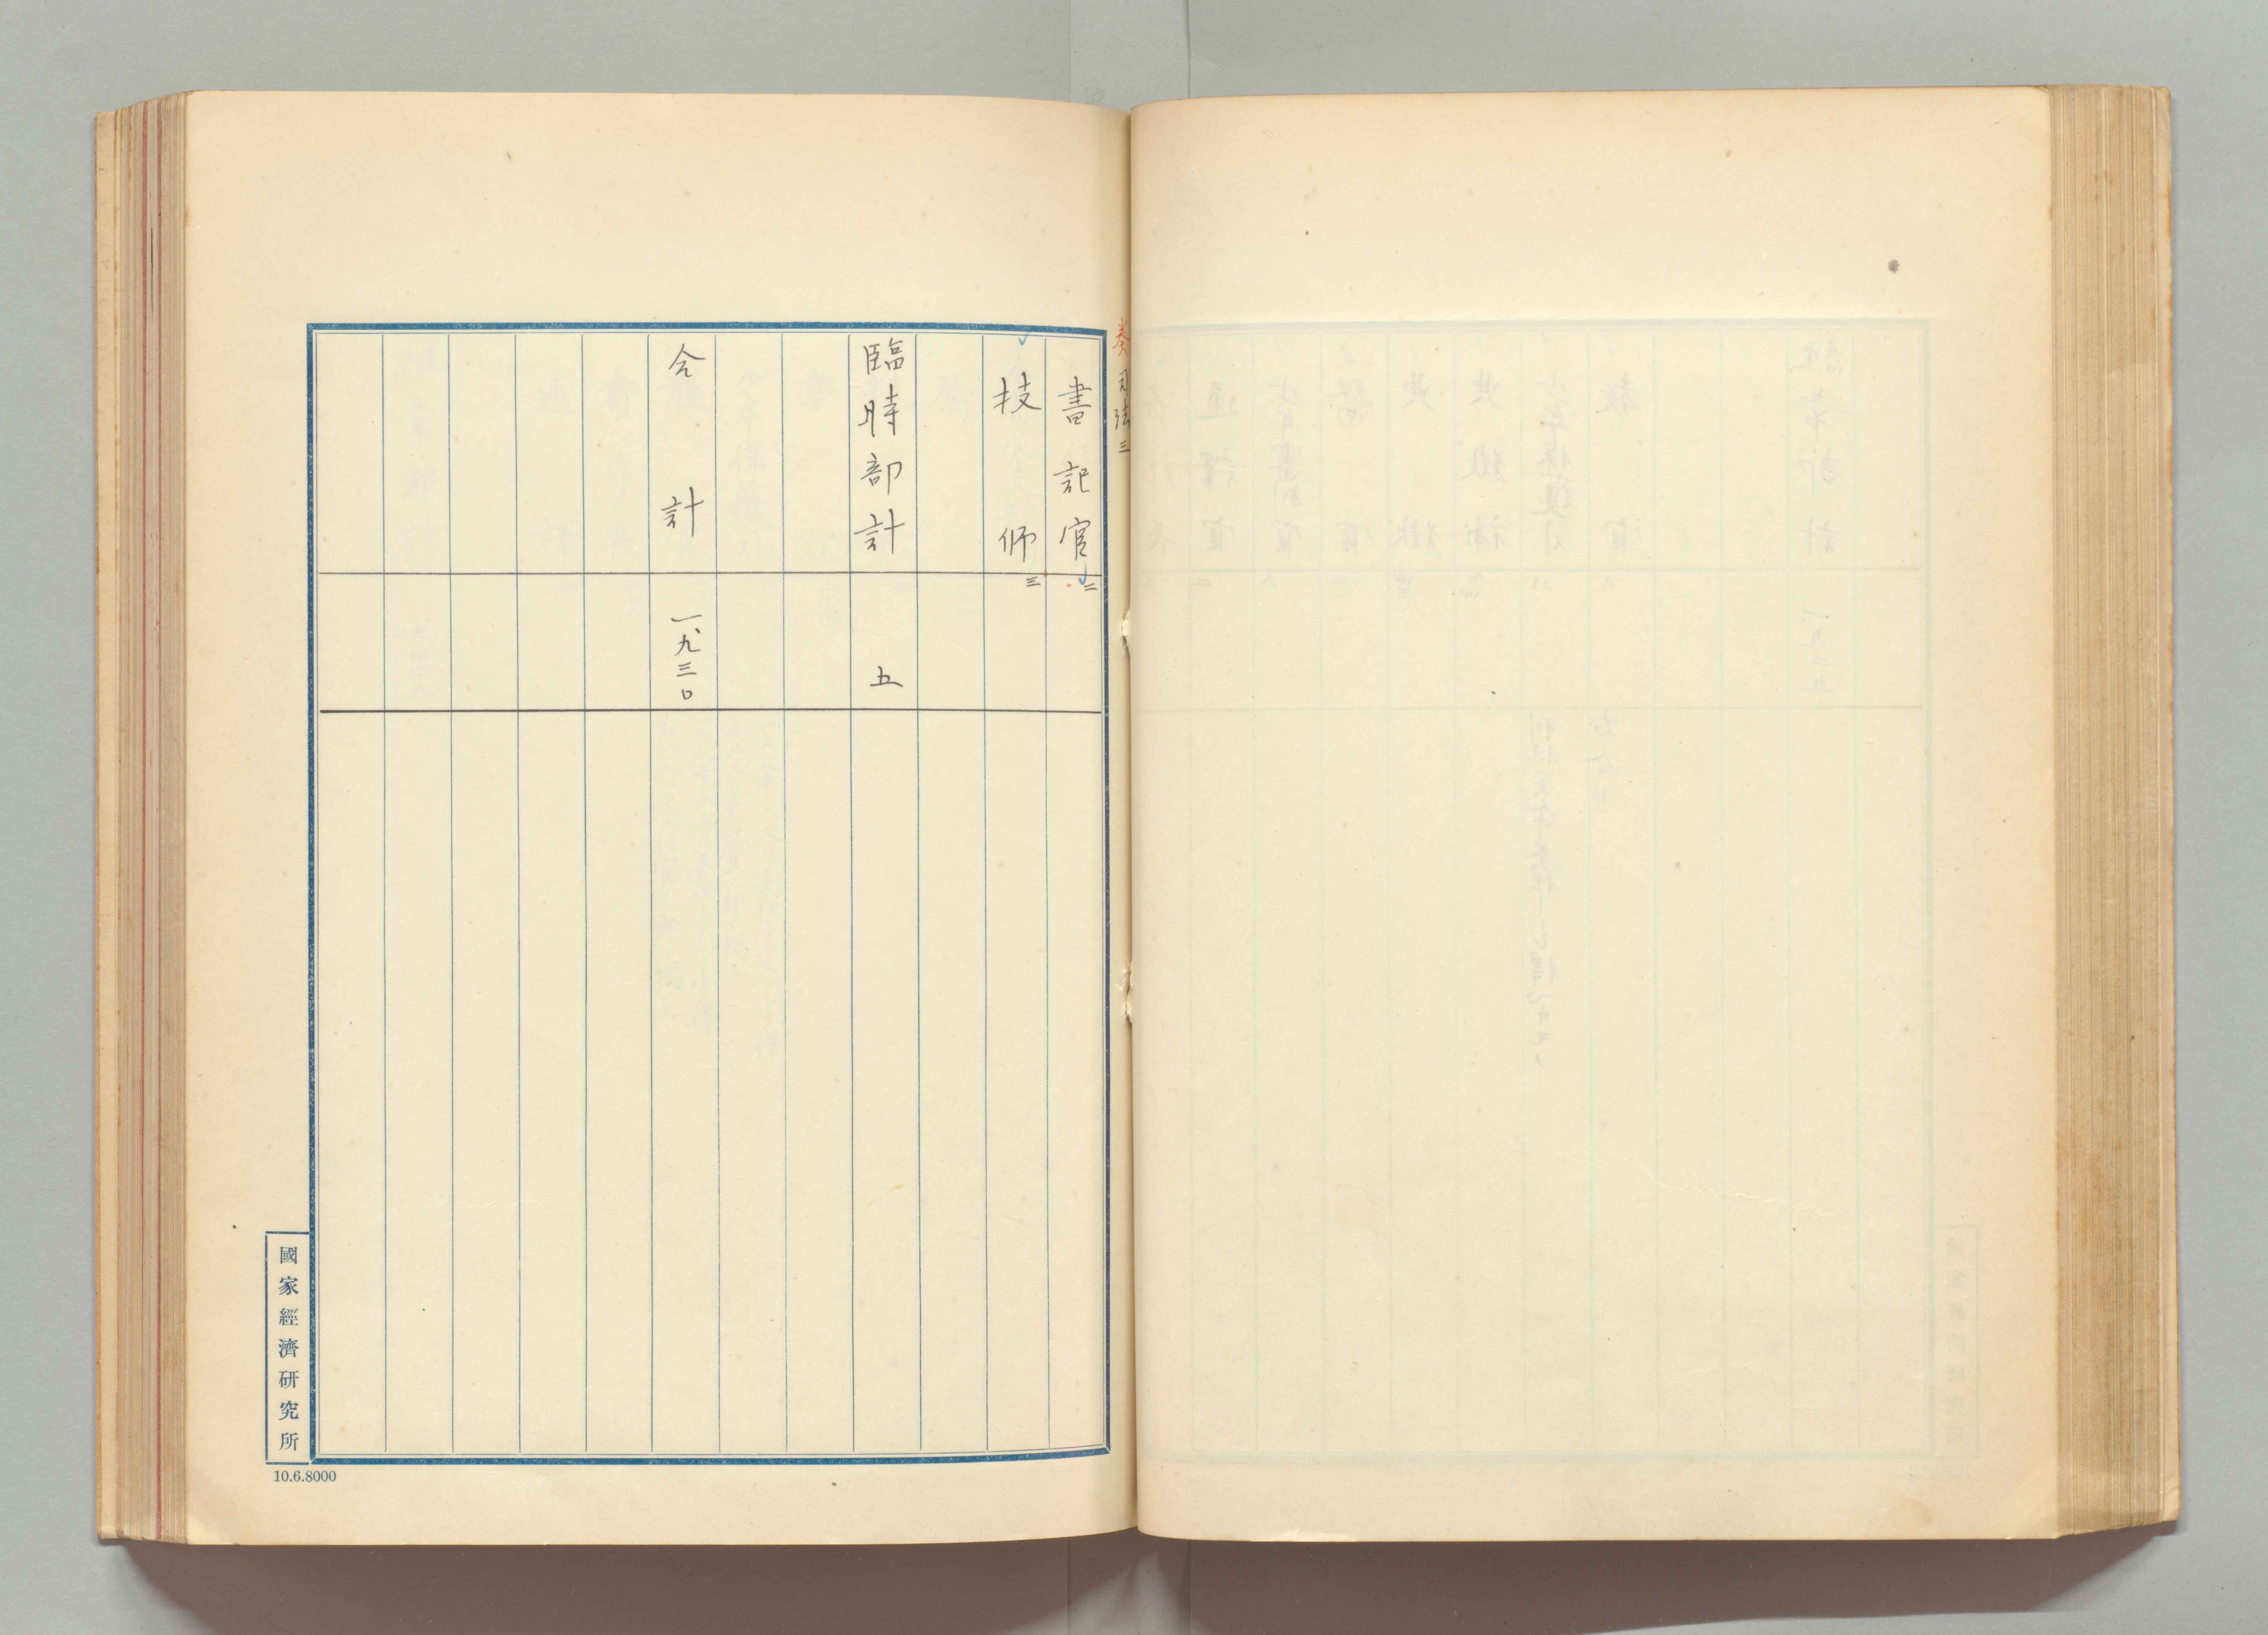 奏 司法 三
書記官 二
技師 三
臨時部計 五
合計 一、九三〇
國家經濟研究所
10.6.8000